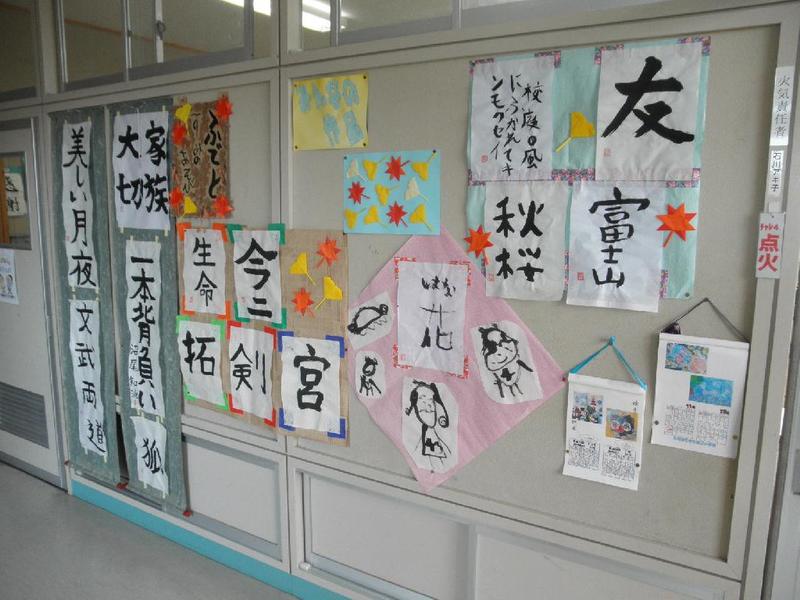 美しい月夜
文武両道
家族
大切
一本背負い
狐
ふでと
生命
今ニ
拓
剣
宮
はな
花
校庭の風
にふかれてキ
ンモクセイ
友
秋桜
富士山
火気責任者
石川アキ子
点火